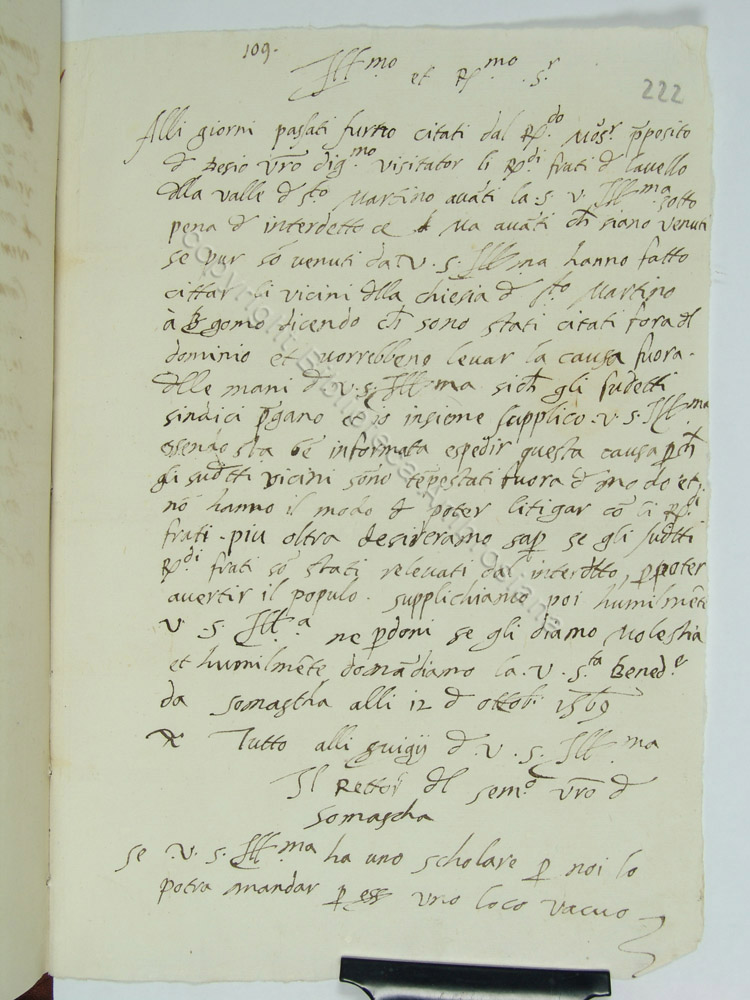 109.
222
Ill.mo et R.mo S.r
Alli giorni passati furno citati dal R.do Mons.r pposito
d Desio vro dig.mo visitator li R.di frati d lavello
dlla valle d s.to Martino avāti la S. V. Ill.ma sotto
pena d interdetto Ma avāti ch siano venuti
se pur sō venuti da V. S. Ill.ma hanno fatto
cittar li vicini dlla chiesia d s.to Martino
à Bgomo dicendo ch sono stati citati fora dl
dominio et vorrebbeno levar la causa fuora
dlle mani d V. S. Ill.ma sich gli sudetti
sindici pgano et io insieme supplico V. S. Ill.ma
essendo sta bē informata espedir questa causa pch
gli sudtti vicini sono tēpestati fuora d modo et
nō hanno il modo d poter litigar cō li R.di
frati. piu oltra desideramo sap se gli sudtti
R.di frati sō stati relevati dal interdtto, p poter
avertir il populo. supplichiamo poi humilmēte
V. S. Ill.a ne pdoni se gli diamo molestia
et humilmēte domādiamo la V. S.ta Bened.e
da Somascha alli 12 d ottob. 1569
Tutto alli svigij d V. S. Ill.ma
Il Rettor dl sem.o vro d
Somascha
Se V. S. Ill.ma ha uno scholare p noi lo
potra mandar p uno loco vacuo
copyright Biblioteca Ambrosiana